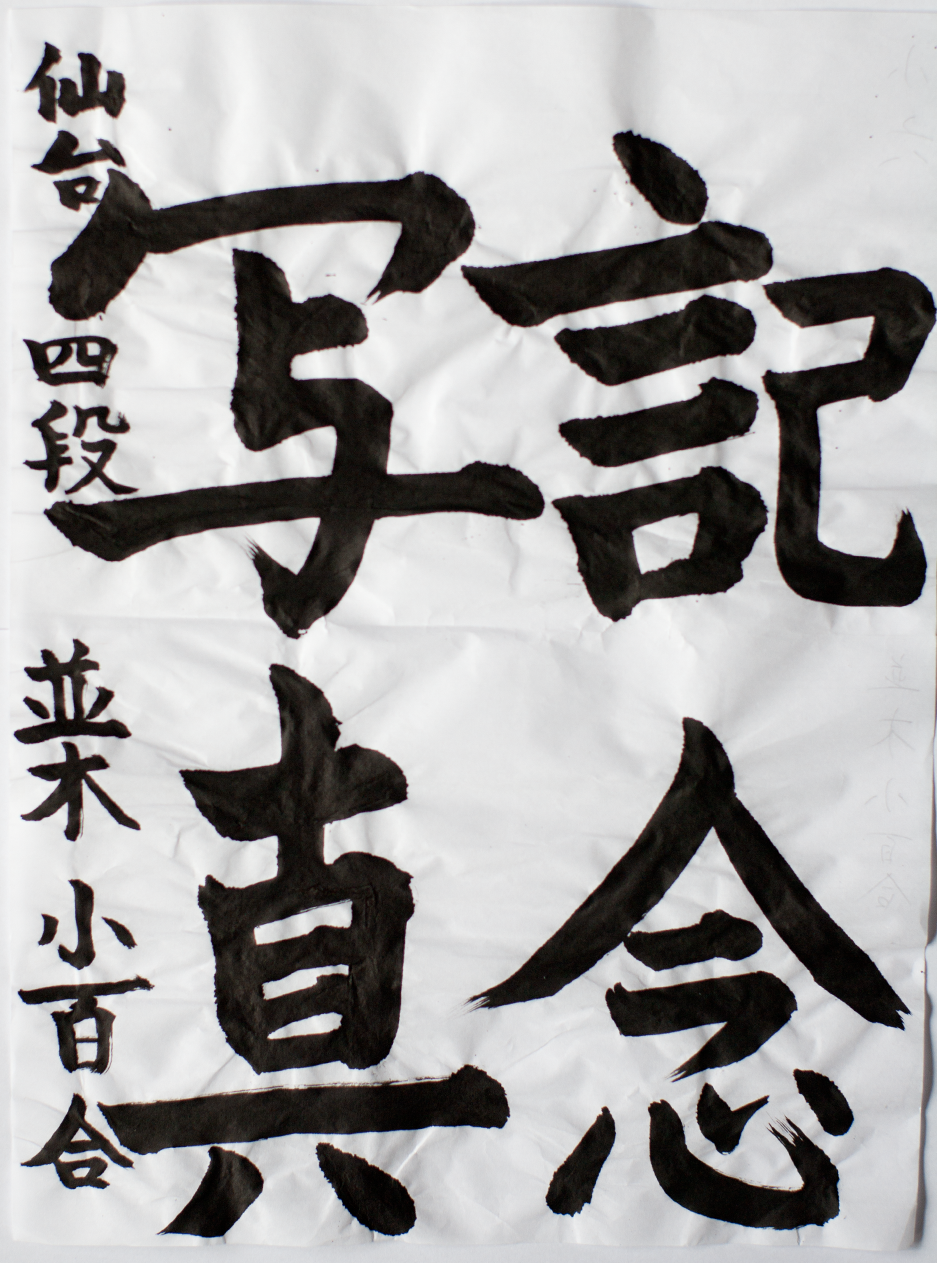 記念
写真
仙台 四段 並木 小百合